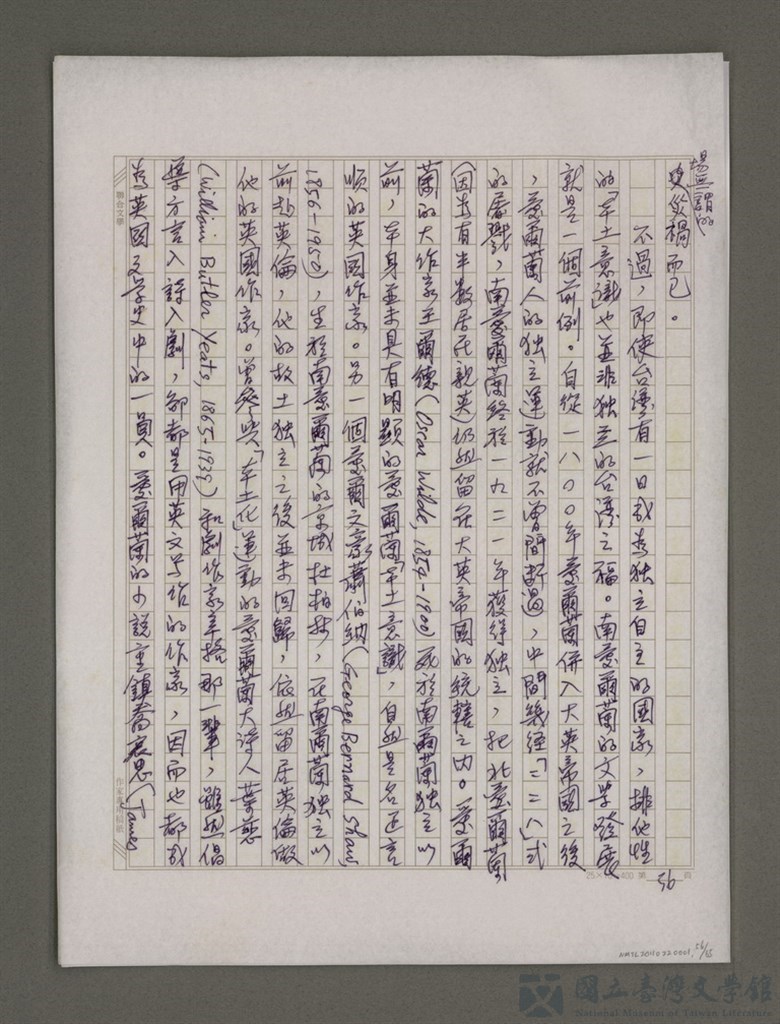 場無謂的
災禍而已。
不過，即使台灣有一日成為独立自主的國家，排他性
的「本土意識」也並非独立的台灣之福。南愛爾蘭的文學發展
就是一個前例。自從一八〇〇年愛爾蘭併入大英帝國之後
，愛爾蘭人的独立運動就不曾間斷過，中間幾經「二二八」式
的屠戮，南愛爾蘭終於一九二一年獲得独立，把北愛爾蘭
(因為有半數居民親英)仍然留在大英帝國的統轄之內。愛爾
蘭的大作家王爾德(Oscar Wilde, 1854-1900)死於南爾蘭独立以
前，本身並未具有明顯的愛爾蘭「本土意識」，自然是名正言
順的英國作家。另一個愛爾文豪蕭伯納(George Bernard Shaw,
1856-1950)，生於南愛爾蘭的京城杜柏林，在南爾蘭独立以
前赴英倫，他的故土独立之後並未回歸，依然留居英倫做
他的英國作家。曾參與「本土化」運動的愛爾蘭大詩人葉慈
(William Butler Yeats, 1865-1939)和劇作家辛格那一輩，雖然倡
導方言入詩入劇，卻都是用英文寫作的作家，因而也都成
為英國文學史中的一員。愛爾蘭的小說重鎮喬哀思(James
聯合文學
25× 400 第 56 頁
NMTL20110320001, 56/
國立臺灣文學館
National Museum of Taiwan Literature